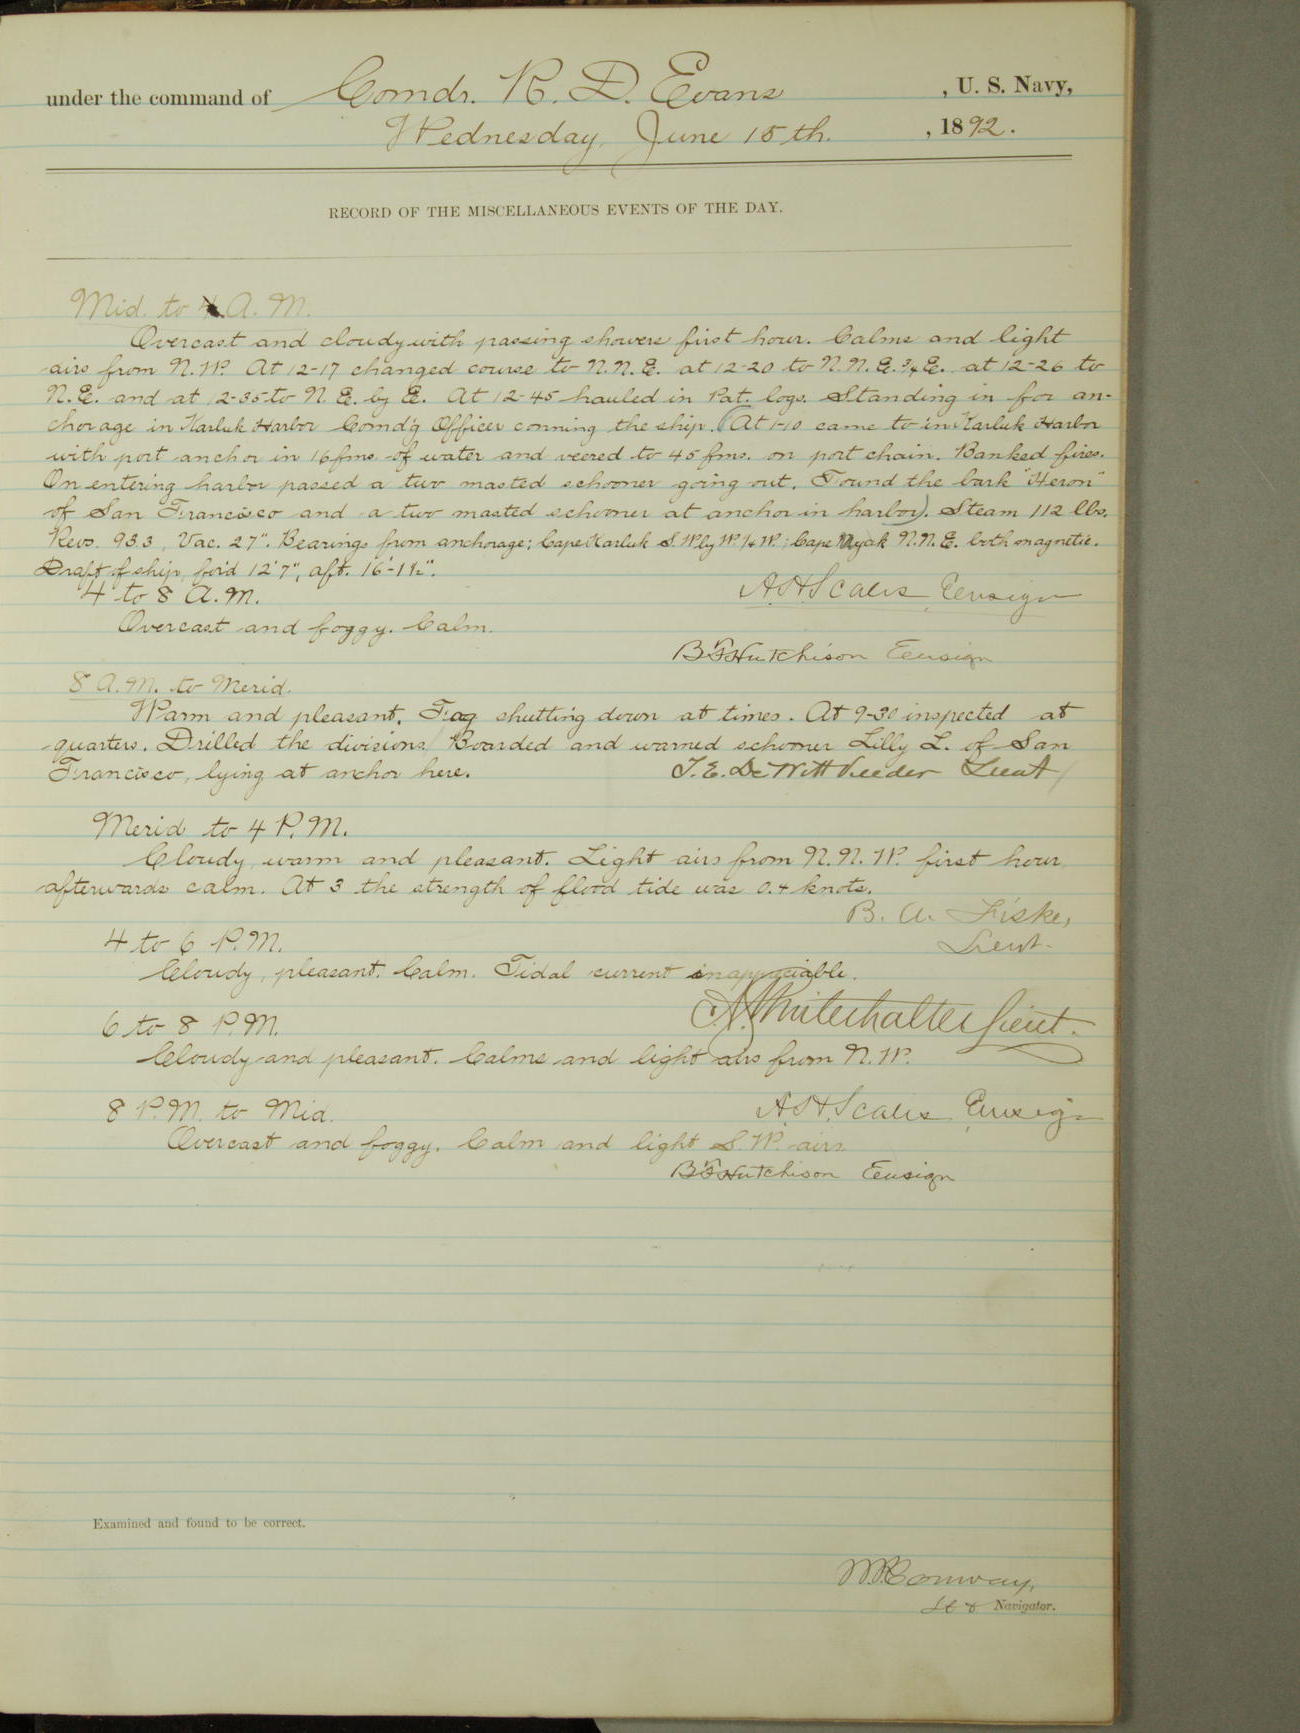 under the command of Comdr. R. D. Evans , U. S. Navy,
Wednesday, June 15th. , 1892.
RECORD OF THE MISCELLANEOUS EVENTS OF THE DAY.
Mid. to 4 A. M.
Overcast and cloudy with passing showers first hour. Calms and light
airs from N.W. At 12-17 changed course to N.N.E. at 12-20 to N.N.E. ¾ E. at 12-26 to
N.E. and at 12-35 to N.E. by E. At 12-45 hauled in Pat. logs. Standing in for an-
chorage in Karluk Harbor Comd'g Officer conning the ship. (At 1-10 came to in Karluk Harbor
with port anchor in 16 fms. of water and veered to 45 fms. on port chain. Banked fires.
On entering harbor passed a two masted schooner going out. Found the bark "Heron"
of San Francisco and a two masted schooner at anchor in harbor). Steam 112 lbs.
Revs. 93.3, Vac. 27". Bearings from anchorage; Cape Karluk S.W. by W. ¼ W.; Cape Uyak N.N.E. both magnetic.
Draft of ship, for'd 12'7", aft. 16'-1½".
A.H. Scales Ensign
4 to 8 A.M.
Overcast and foggy. Calm.
B.F. Hutchison Ensign
8 A.M. to Merid.
Warm and pleasant. Fog shutting down at times. At 9-30 inspected at
quarters. Drilled the divisions. Boarded and warned schooner Lilly L. of San
Francisco, lying at anchor here. T.E. DeWitt Veeder Lieut
Merid to 4 P.M.
Cloudy, warm and pleasant. Light airs from N.N.W. first hour
afterwards calm. At 3 the strength of flood tide was 0.4 knots.
B. A. Fiske,
Lieut.
4 to 6 P.M.
Cloudy, pleasant. Calm. Tidal current inappreciable.
A.G. Winterhalter Lieut.
6 to 8 P.M.
Cloudy and pleasant. Calms and light airs from N.W.
A.H. Scales Ensign
8 P.M. to Mid.
Overcast and foggy. Calm and light S.W. airs
B.F. Hutchison Ensign
Examined and found to be correct.
W.P. Conway,
Lt & Navigator.